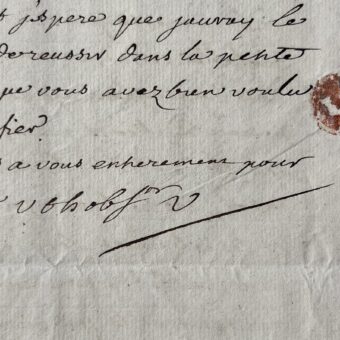 j'espere que jauray le
de reussir dans la petite
que vous avez bien voulu
fier
a vous entierement pour
v t h obsr V